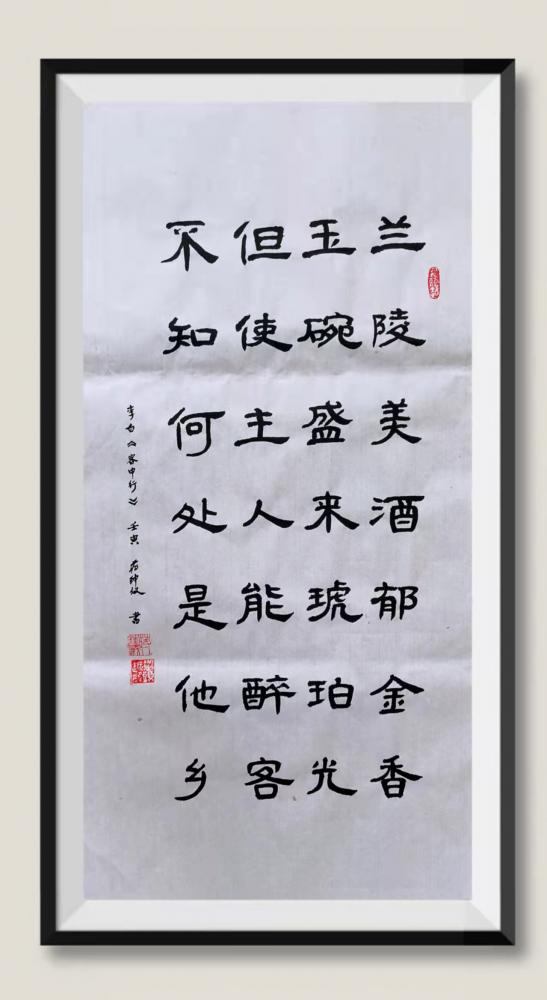 兰陵美酒郁金香
玉碗盛来琥珀光
但使主人能醉客
不知何处是他乡
李白《客中行》 壬寅 书